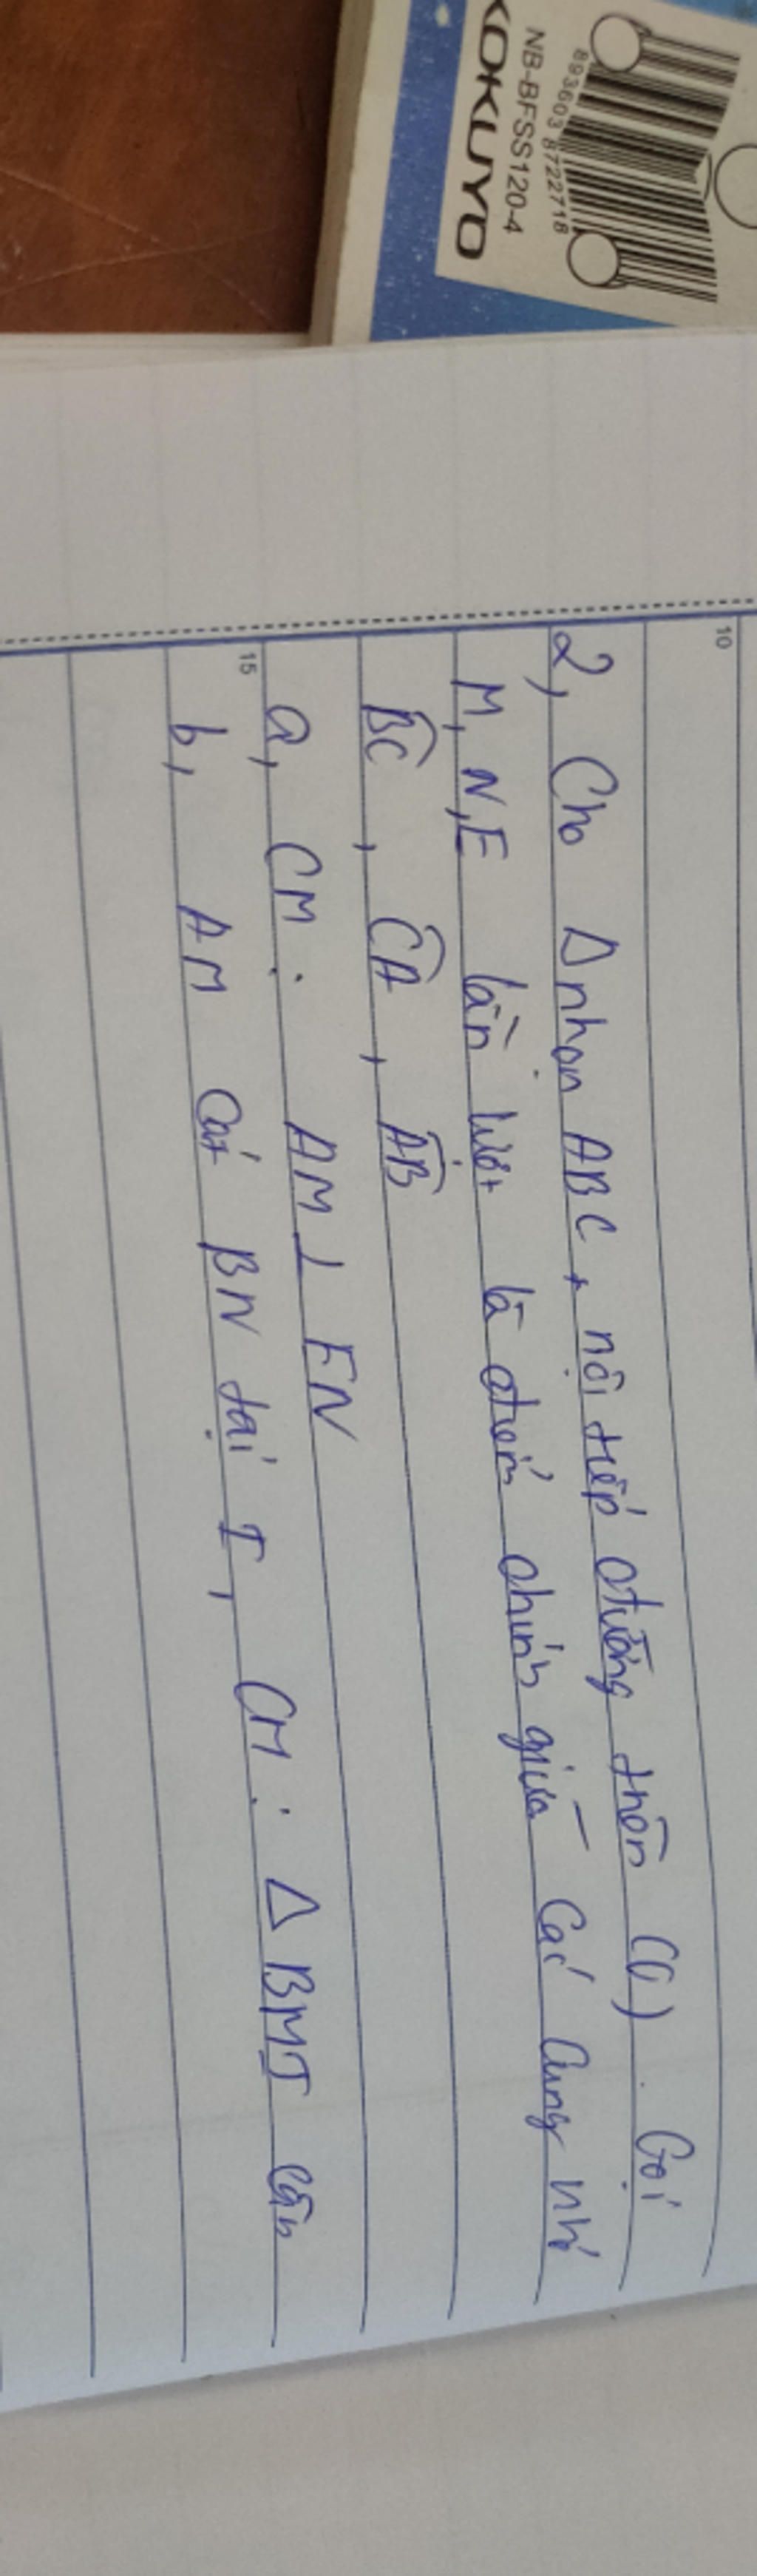 KOKUYO
NB-BFSS120-4
893603 8722718
10
2, Cho Δ nhọn ABC, nội tiếp đường tròn (O). Gọi
M, N, E lần lượt là điểm chính giữa các cung nhỏ
BC, CA, AB
a, CM: AM ⊥ EN
15
b, AM cắt BN tại I, CM: Δ BMI cân